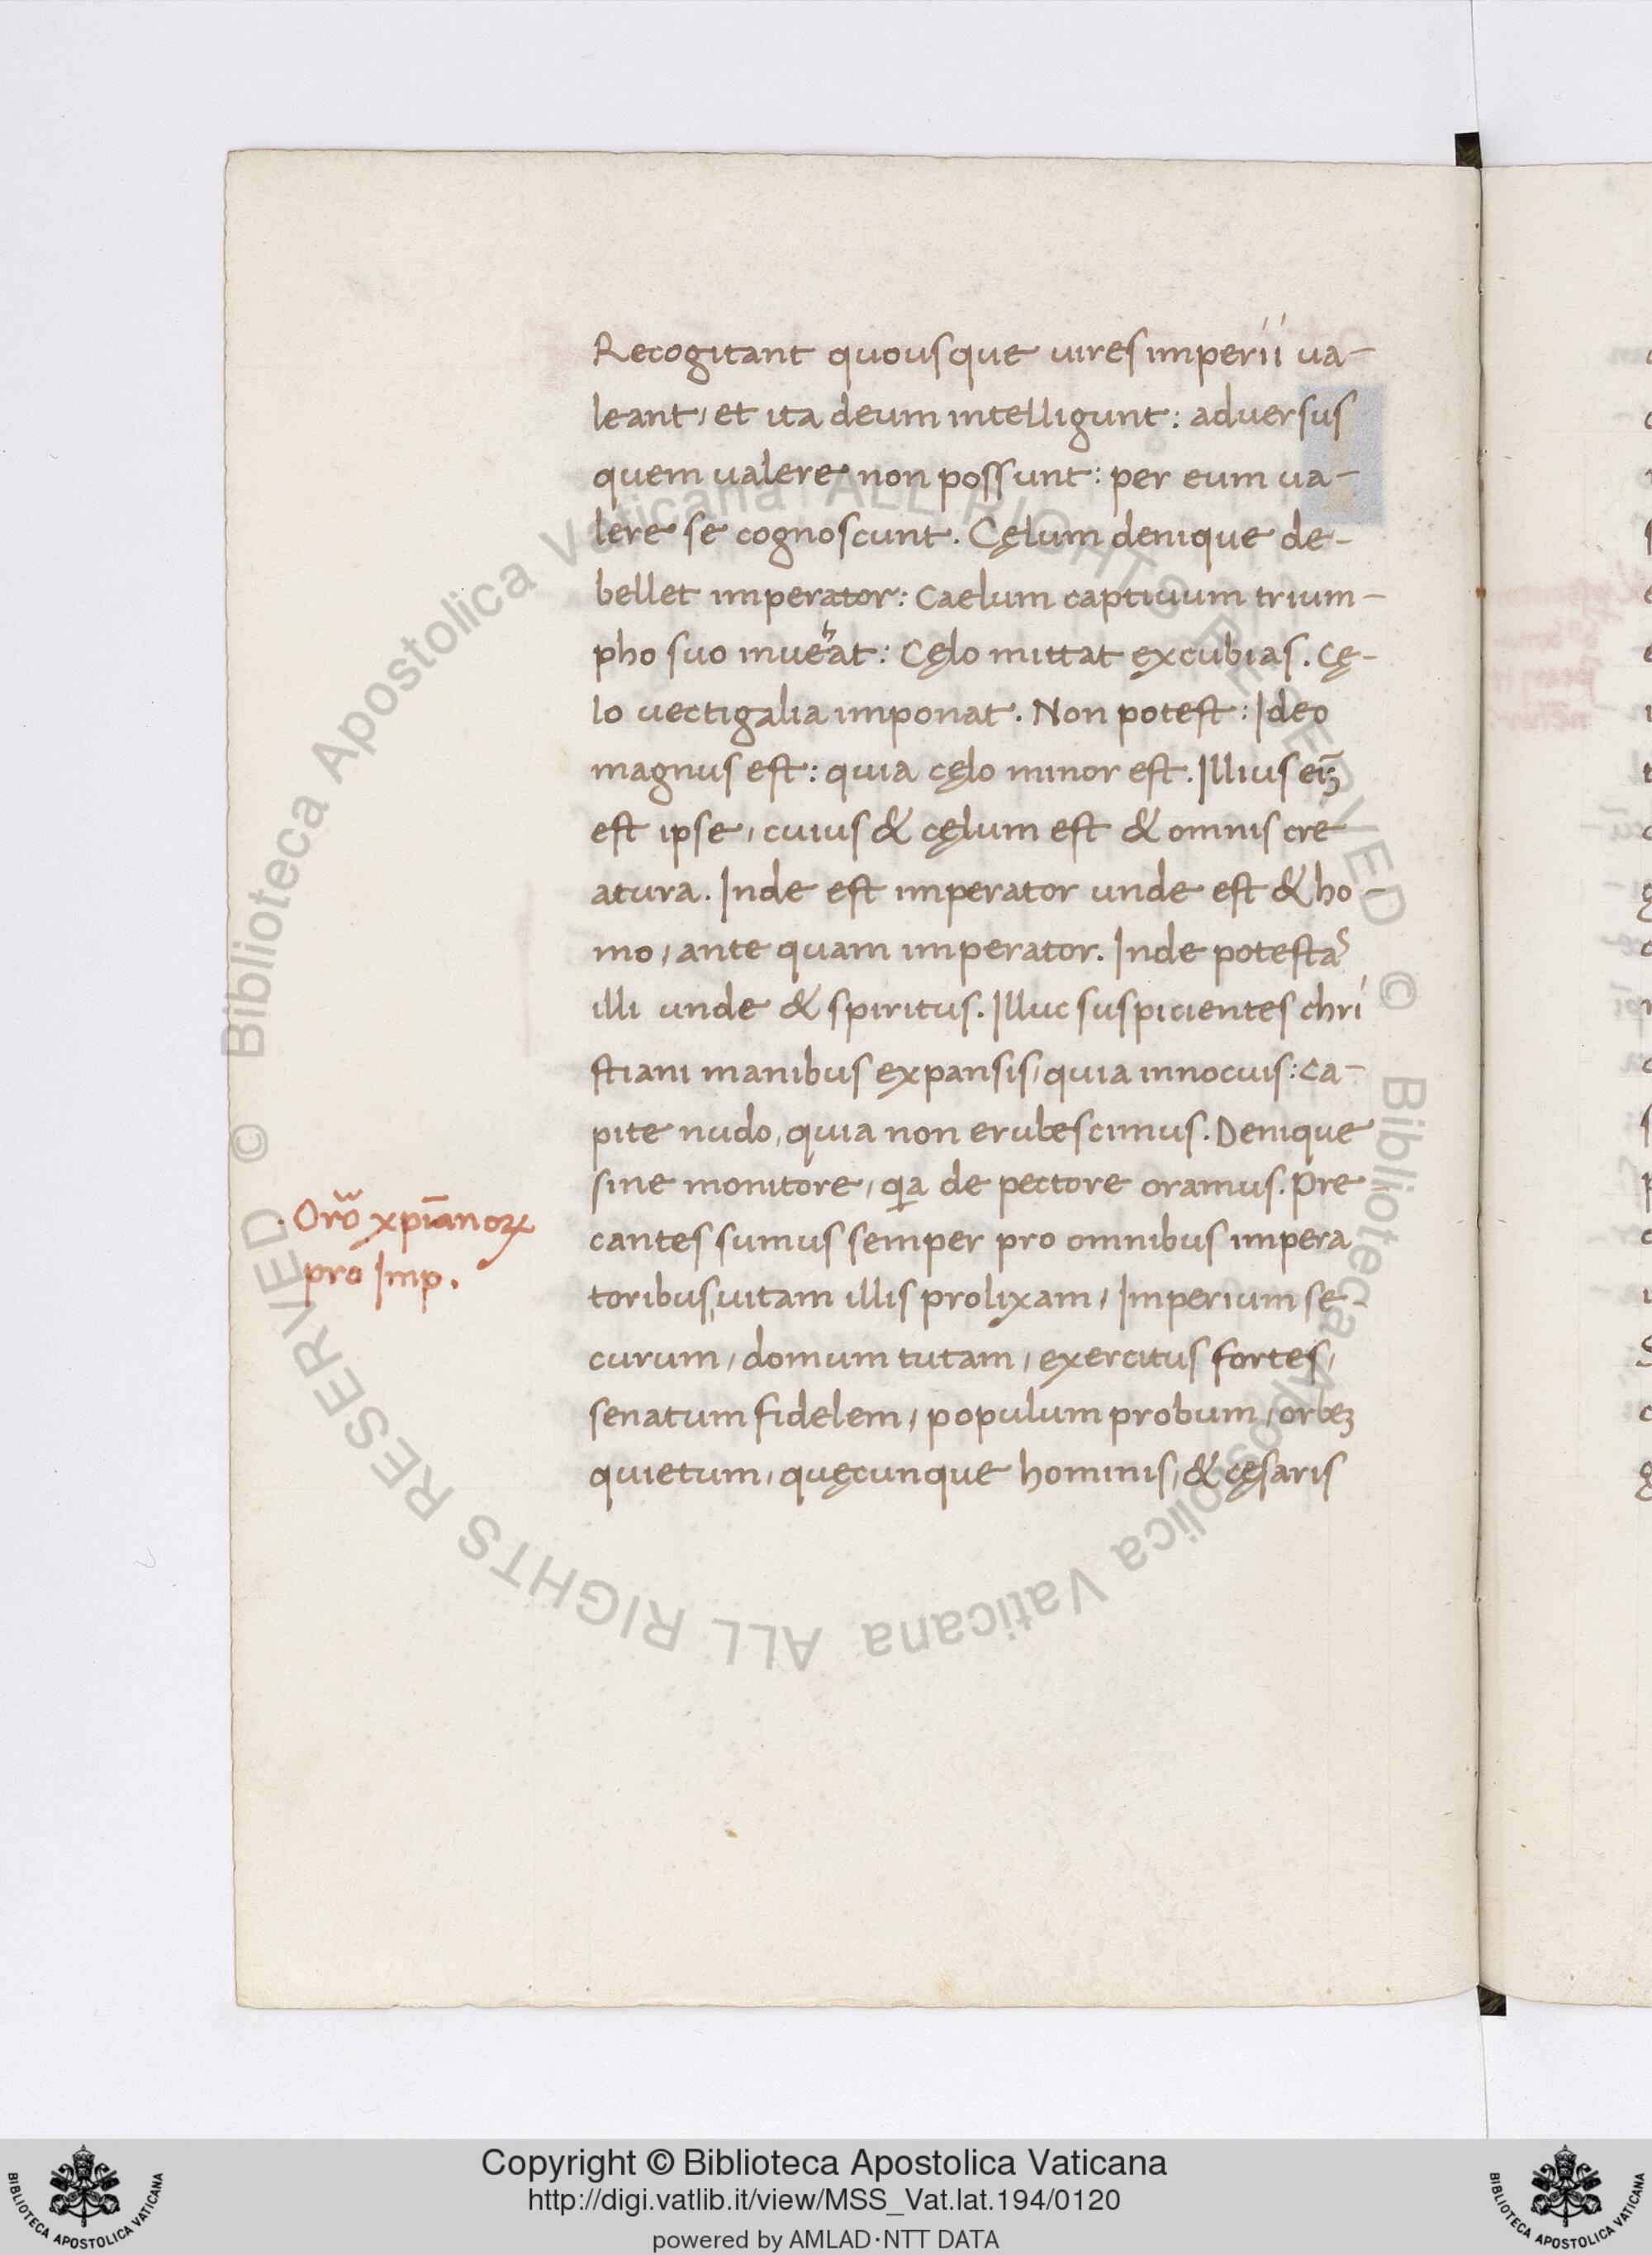 Recogitant quousque uires imperii ua-
leant, et ita deum intelligunt: adversus
quem ualere non possunt: per eum ua-
lere se cognoscunt. Cęlum denique de-
bellet imperator: Caelum captiuum trium-
pho suo inuehat: Cęlo mittat excubias. Cę-
lo uectigalia imponat. Non potest: Ideo
magnus est: quia cęlo minor est. Illius
est ipse, cuius & cęlum est & omnis cre
atura. Inde est imperator unde est & ho-
mo, ante quam imperator. Inde potestas
illi unde & spiritus. Illuc suspicientes chri
stiani manibus expansis, quia innocuis: Ca-
pite nudo, quia non erubescimus. Denique
·Orō xpīanoꝝ
pro Imp.
sine monitore, qa de pectore oramus. Pre
cantes sumus semper pro omnibus impera
toribus, uitam illis prolixam, Imperium se-
curum, domum tutam, exercitus fortes,
senatum fidelem, populum probum, orbeꝫ
quietum, quęcunque hominis, & cęsaris
© Biblioteca Apostolica Vaticana ALL RIGHTS RESERVED © Biblioteca Apostolica Vaticana ALL RIGHTS RESERVED
Copyright © Biblioteca Apostolica Vaticana
http://digi.vatlib.it/view/MSS_Vat.lat.194/0120
powered by AMLAD·NTT DATA
BIBLIOTECA APOSTOLICA VATICANA
BIBLIOTECA APOSTOLICA VATICANA